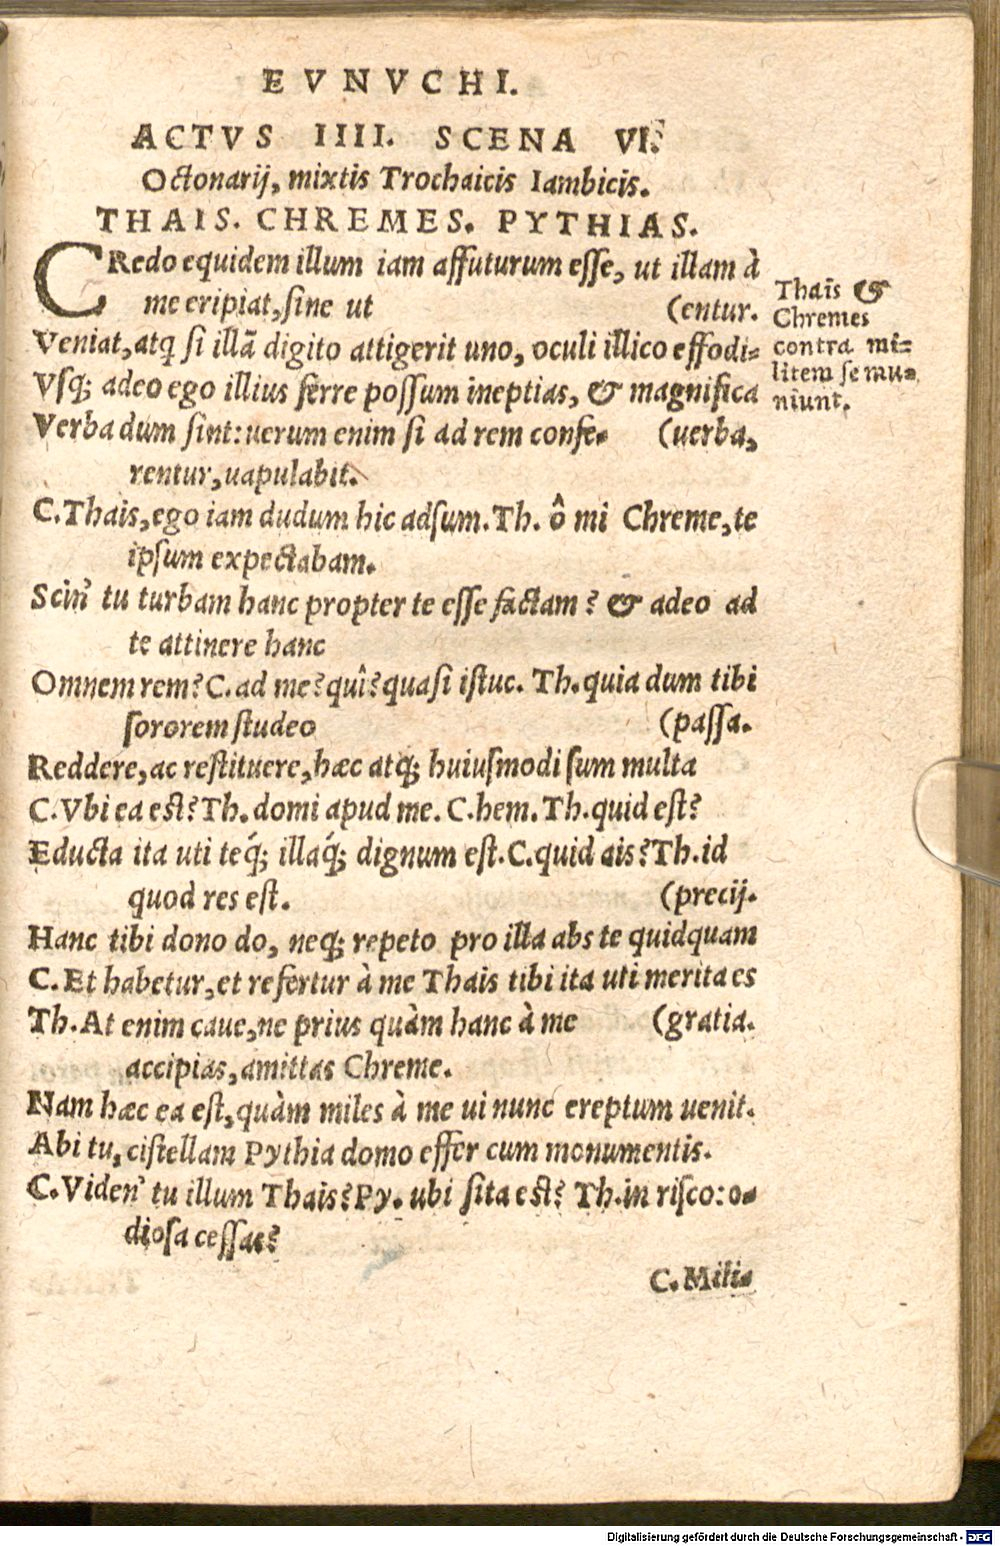 EVNVCHI.
ACTVS IIII. SCENA VI.
Octonarij, mixtis Trochaicis Iambicis.
THAIS. CHREMES. PYTHIAS.
CRedo equidem illum iam affuturum esse, ut illam à
me eripiat, sine ut (entur.
Veniat, atq; si illã digito attigerit uno, oculi illico effodi=
Vsq; adeo ego illius ferre possum ineptias, & magnifica
Verba dum sint: uerum enim si ad rem confe= (uerba,
rentur, uapulabit.
C. Thais, ego iam dudum hic adsum. Th. ô mi Chreme, te
ipsum expectabam.
Scin' tu turbam hanc propter te esse factam? & adeo ad
te attinere hanc
Omnem rem? C. ad me? quî? quasi istuc. Th. quia dum tibi
sororem studeo (passa.
Reddere, ac restituere, hæc atq; huiusmodi sum multa
C. Vbi ea est? Th. domi apud me. C. hem. Th. quid est?
Educta ita uti teq́; illaq́; dignum est. C. quid ais? Th. id
quod res est. (precij.
Hanc tibi dono do, neq; repeto pro illa abs te quidquam
C. Et habetur, et refertur à me Thais tibi ita uti merita es
Th. At enim caue, ne prius quàm hanc à me (gratia.
accipias, amittas Chreme.
Nam hæc ea est, quàm miles à me ui nunc ereptum uenit.
Abi tu, cistellam Pythia domo effer cum monumentis.
C. Viden' tu illum Thais? Py. ubi sita est? Th. in risco: o=
diosa cessas?
C. Mili=
Thais &
Chremes
contra mi=
litem se mu=
niunt.
Digitalisierung gefördert durch die Deutsche Forschungsgemeinschaft - DFG